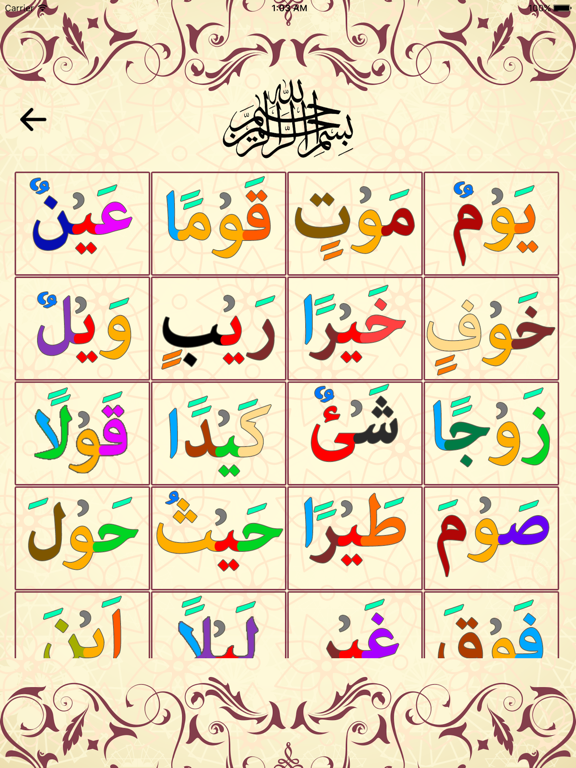 Carrier 1:03 AM 100%
بسم الله الرحمن الرحيم
يَوْمٌ مَوْتٍ قَوْمًا عَيْنٌ
خَوْفٍ خَيْرًا رَيْبٍ وَيْلٌ
زَوْجًا شَىْئٌ كَيْدًا قَوْلًا
صَوْمَ طَيْرًا حَيْثُ حَوْلَ
فَوْقَ غَيْرَ لَيْلًا اَيْنَ